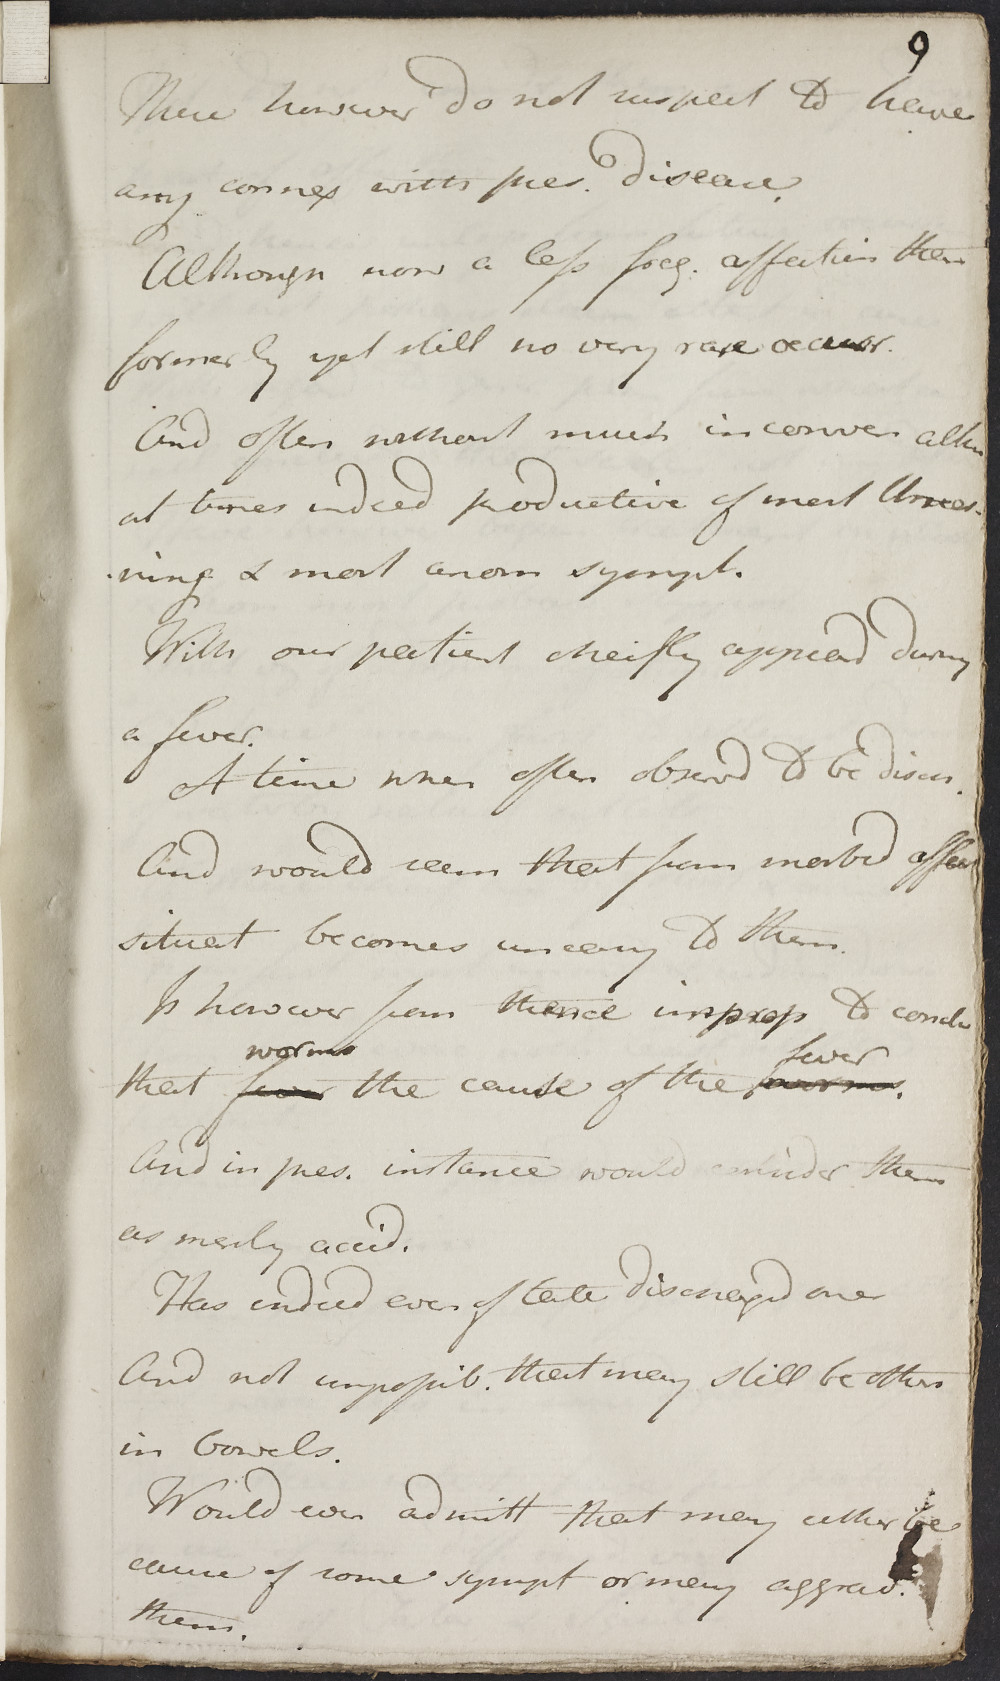 9
These however do not suspect to have
any connex with pres. disease.
Although now a less freq. affection then
formerly yet still no very rare occurr.
And often without much inconven altho
at times indeed productive of most
& most anom sympt.
With our patient cheifly appeard during
a fever.
A time when often observd to be discov.
And would seem that from morbid affect
situat becomes uneasy to them.
Is however from thence improp to conclu
worms fever
that fever the cause of the worms.
And in pres. instance would consider them
as merly accid.
Has indeed even of late dischargd one
And not impossib. that may still be others
in bowels.
Would even admitt that may either be
cause of some sympt or may aggrav.
them.